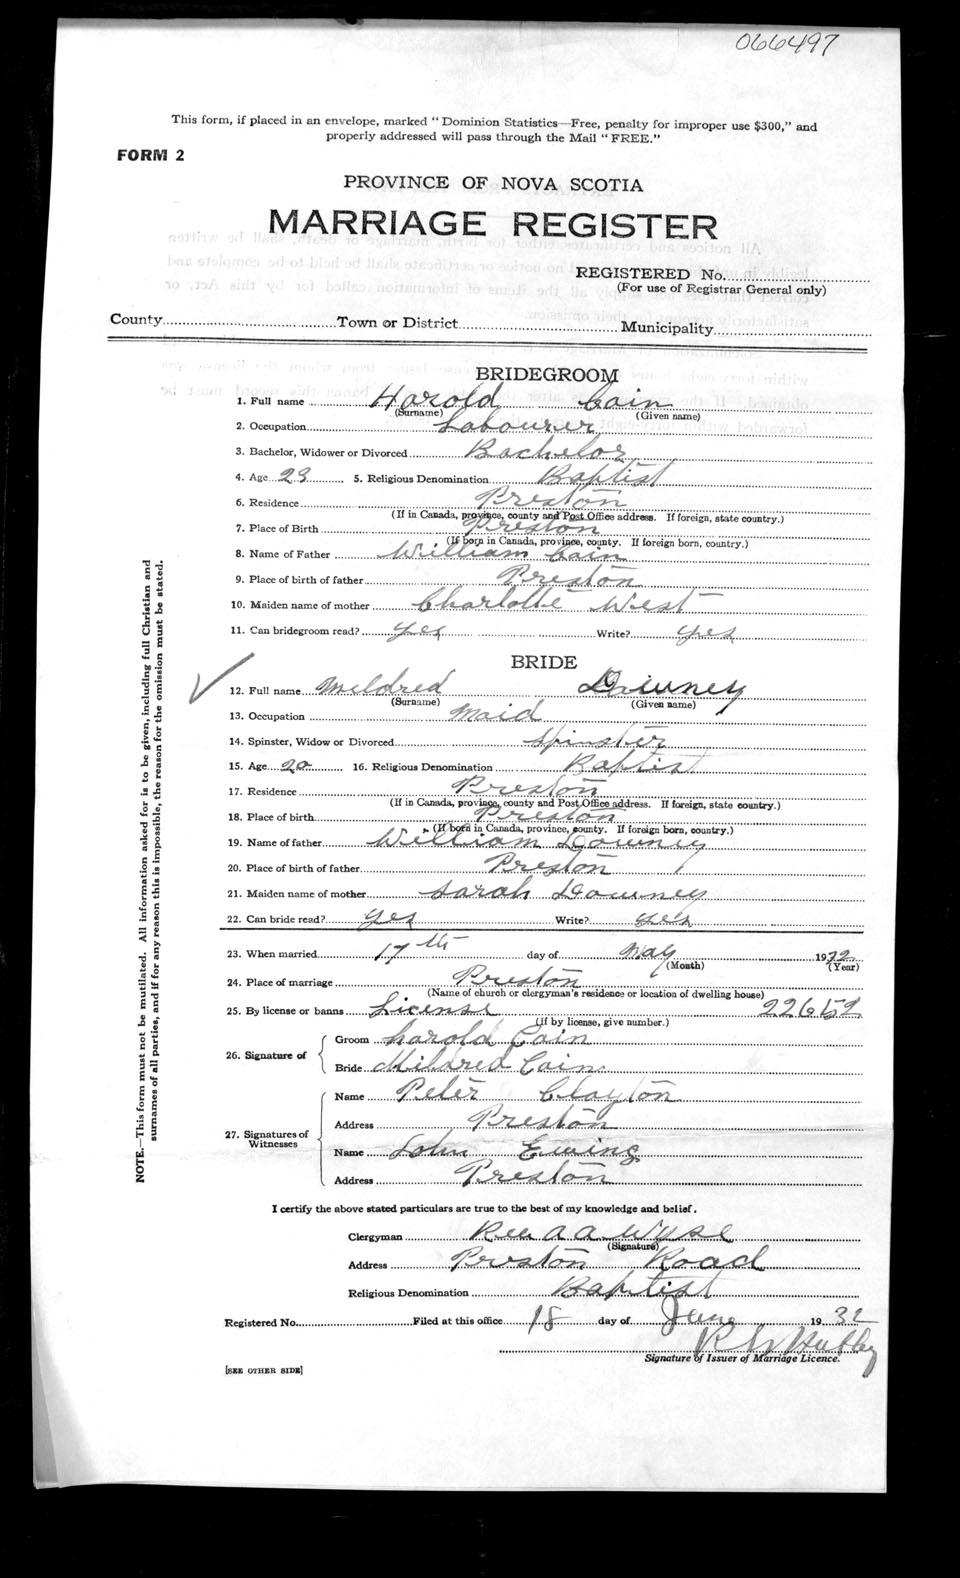 066497
This form, if placed in an envelope, marked "Dominion Statistics—Free, penalty for improper use $300," and
properly addressed will pass through the Mail "FREE."
FORM 2
PROVINCE OF NOVA SCOTIA
MARRIAGE REGISTER
REGISTERED No.
(For use of Registrar General only)
County Town or District Municipality
BRIDEGROOM
1. Full name Harold Cain
(Surname) (Given name)
2. Occupation Labourer
3. Bachelor, Widower or Divorced Bachelor
4. Age 23 5. Religious Denomination Baptist
6. Residence Preston
(If in Canada, province, county and Post Office address. If foreign, state country.)
7. Place of Birth Preston
(If born in Canada, province, county. If foreign born, country.)
8. Name of Father William Cain
9. Place of birth of father Preston
10. Maiden name of mother Charlotte West
11. Can bridegroom read? yes Write? yes
BRIDE
12. Full name Mildred Downey
(Surname) (Given name)
13. Occupation Maid
14. Spinster, Widow or Divorced Spinster
15. Age 20 16. Religious Denomination Baptist
17. Residence Preston
(If in Canada, province, county and Post Office address. If foreign, state country.)
18. Place of birth Preston
(If born in Canada, province, county. If foreign born, country.)
19. Name of father William Downey
20. Place of birth of father Preston
21. Maiden name of mother Sarah Downey
22. Can bride read? yes Write? yes
23. When married 17th day of May 1932
(Month) (Year)
24. Place of marriage Preston
(Name of church or clergyman's residence or location of dwelling house)
25. By license or banns License 22652
(If by license, give number.)
26. Signature of
Groom Harold Cain
Bride Mildred Cain
27. Signatures of Witnesses
Name Peter Clayton
Address Preston
Name John Ewing
Address Preston
I certify the above stated particulars are true to the best of my knowledge and belief.
Clergyman Rev A A Wyse
(Signature)
Address Preston Road
Religious Denomination Baptist
Registered No. Filed at this office 18 day of June 1932
Hubley
Signature of Issuer of Marriage Licence.
[SEE OTHER SIDE]
NOTE.—This form must not be mutilated. All information asked for is to be given, including full Christian and
surnames of all parties, and if for any reason this is impossible, the reason for the omission must be stated.